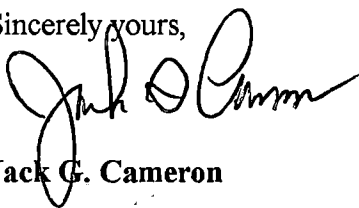 Sincerely yours,
Jack G. Cameron
Jack G. Cameron